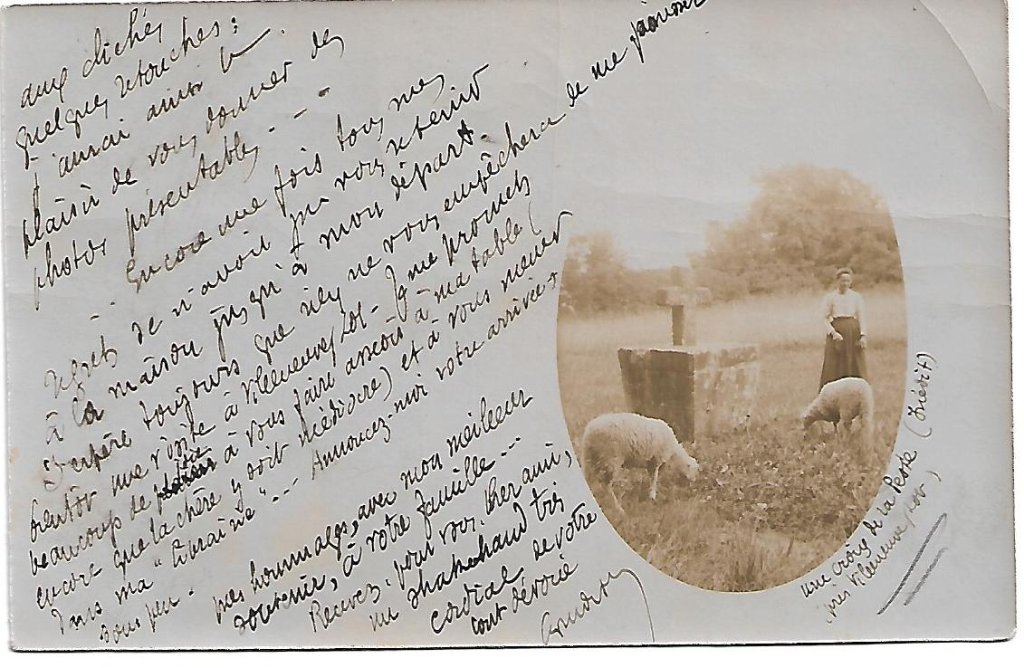 aux clichés
quelques retouches :
j'aurai ainsi le
plaisir de vous donner des
photos présentables - - -
Encore une fois tous mes
regrets de n'avoir pu vous retenir
à la maison jusqu'à mon départ.
J'espère toujours que rien ne vous empêchera de me
bientôt une visite à Villeneuve s/ - Je me promets
beaucoup de à vous faire asseoir à ma table (
encore que la chère y soit médiocre) et à vous mener
dans ma "librairie" - - Annoncez-moi votre arrivée
sous peu -
mes hommages, avec mon meilleur
souvenir, à votre famille - -
Recevez, pour vous, cher ami,
un shakehand très
cordial de votre
tout dévoué
une croix de la Peste (Inédit)
près Villeneuve